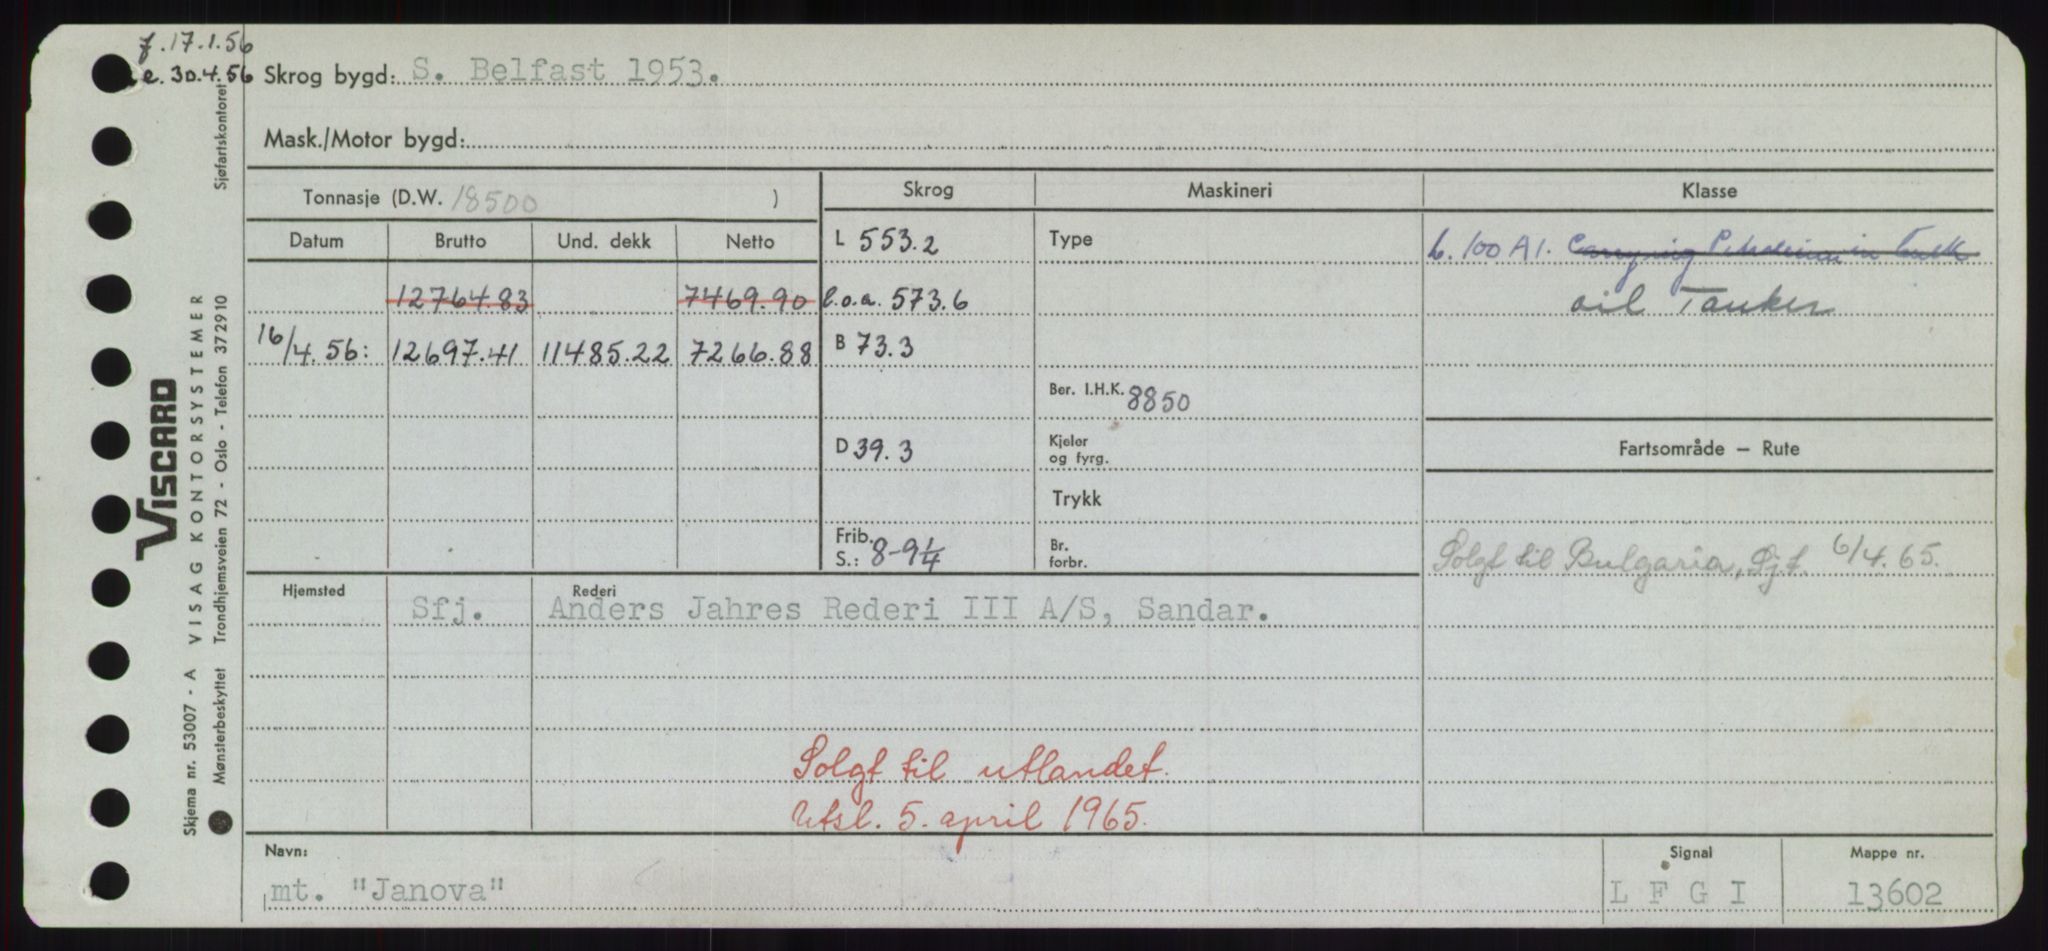 f. 17.1.56
e. 30.4.56 Skrog bygd: S. Belfast 1953.
Mask./Motor bygd:
Tonnasje (D.W. 18500 )
Skrog Maskineri Klasse
Datum Brutto Und. dekk Netto
L 553.2 Type L. 100 A 1. Carrying Petroleum in bulk
12764.83 7469.90 l.o.a. 573.6 oil Tanker
16/4.56: 12697.41 11485.22 7266.88 B 73.3
Ber. I.H.K. 8850
D 39.3 Kjeler og fyrg. Fartsområde — Rute
Trykk
Frib. S.: 8-9¼ Br. forbr. Solgt til Bulgaria, Sjf. 6/4.65.
Hjemsted Rederi
Sfj. Anders Jahres Rederi III A/S, Sandar.
Solgt til utlandet.
Utsl. 5. april 1965.
Navn: Signal Mappe nr.
mt. "Janova" L F G I 13602
Sjøfartskontoret
VISCARD
VISAG KONTORSYSTEMER
Trondhjemsveien 72 - Oslo - Telefon 372910
Skjema nr. 53007 - A
Mønsterbeskyttet